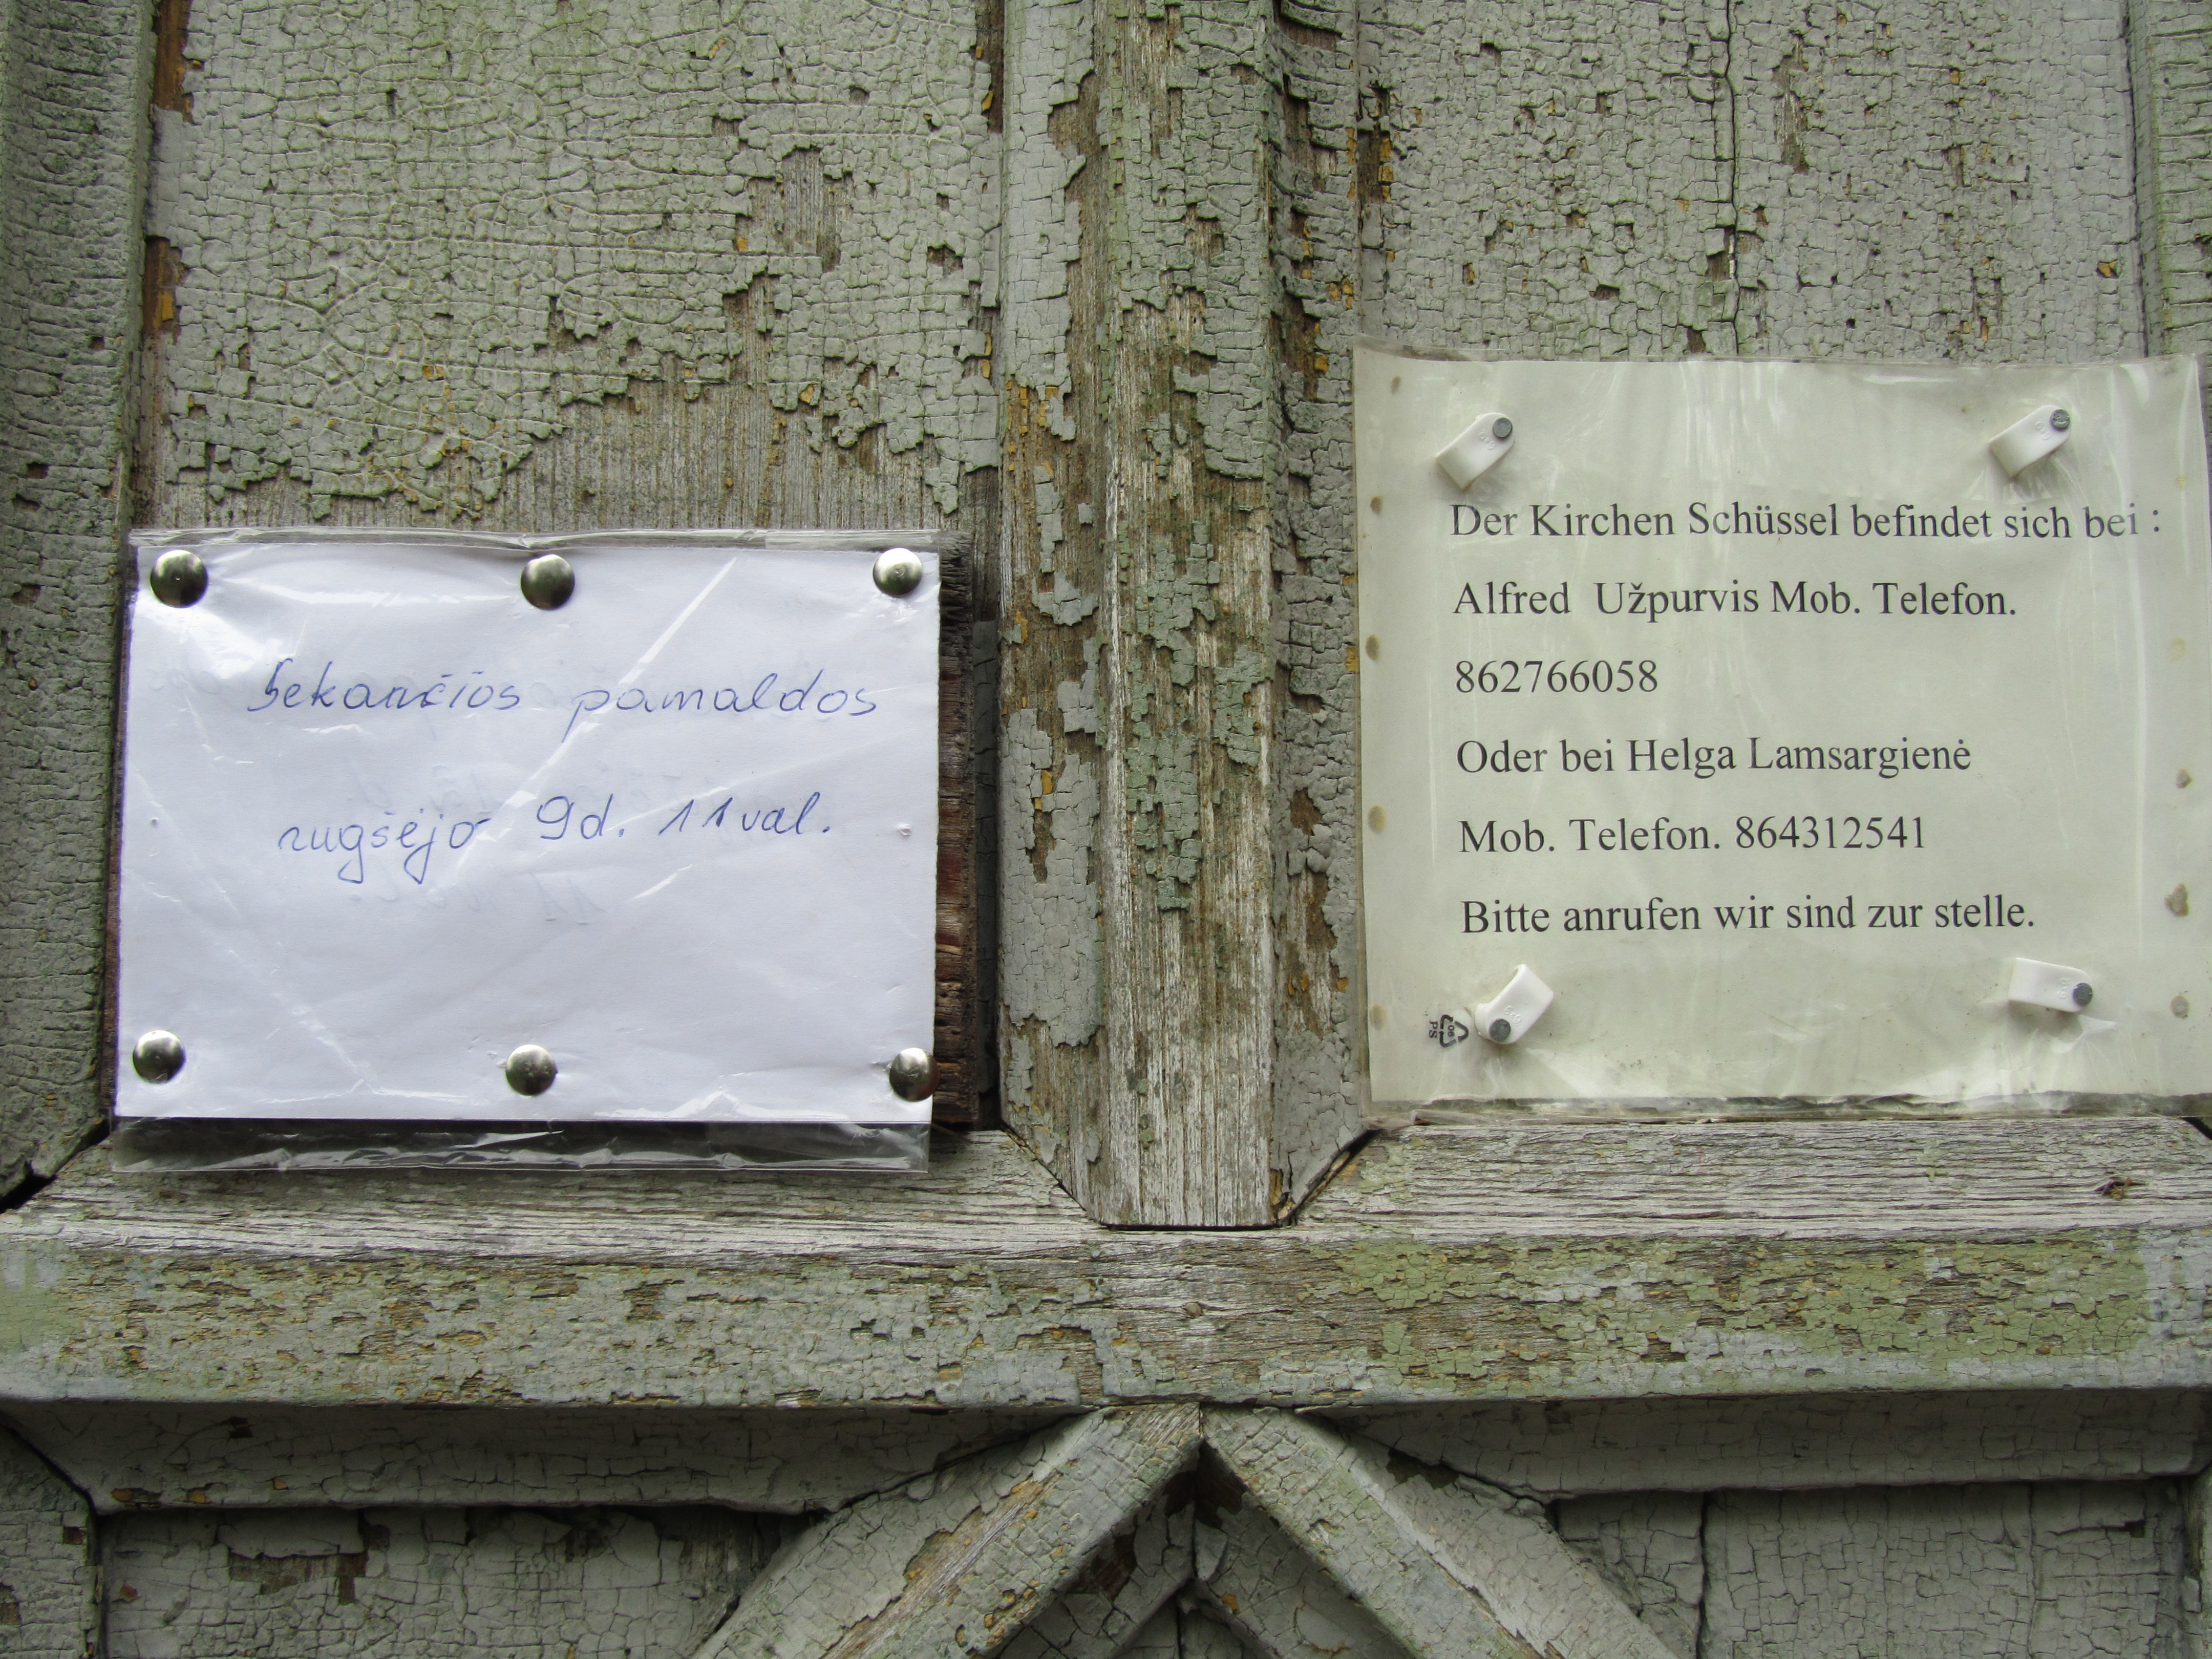 Sekančios pamaldos
rugsėjo 9d. 11val.
Der Kirchen Schüssel befindet sich bei :
Alfred Užpurvis Mob. Telefon.
862766058
Oder bei Helga Lamsargienė
Mob. Telefon. 864312541
Bitte anrufen wir sind zur stelle.
06
PS